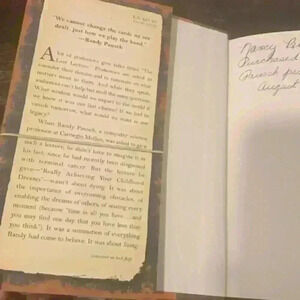 "We cannot change the cards we are
dealt, just how we play the hand."
—Randy Pausch
A lot of professors give talks titled "The
Last Lecture." Professors are asked to
consider their demise and to ruminate on what
matters most to them. And while they speak,
audiences can't help but mull the same question:
What wisdom would we impart to the world if
we knew it was our last chance? If we had to
vanish tomorrow, what would we want as our
legacy?
When Randy Pausch, a computer science
professor at Carnegie Mellon, was asked to give
such a lecture, he didn't have to imagine it as
his last, since he had recently been diagnosed
with terminal cancer. But the lecture he
gave—"Really Achieving Your Childhood
Dreams"—wasn't about dying. It was about
the importance of overcoming obstacles, of
enabling the dreams of others, of seizing every
moment (because "time is all you have...and
you may find one day that you have less than
you think"). It was a summation of everything
Randy had come to believe. It was about living.
Nancy
Purchased
August